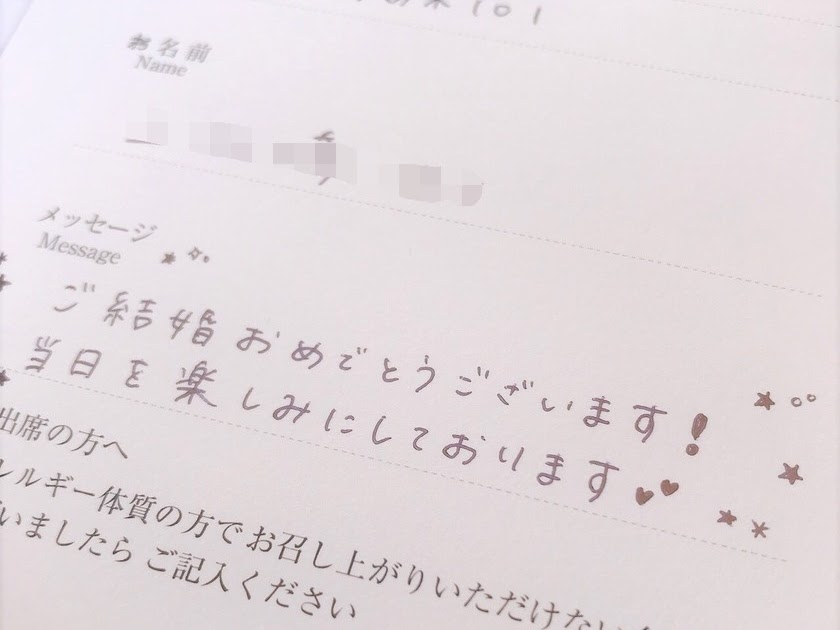 101
お名前
Name
メッセージ
Message
ご結婚おめでとうございます!
当日を楽しみにしております
出席の方へ
レルギー体質の方でお召し上がりいただけない
いましたら ご記入ください